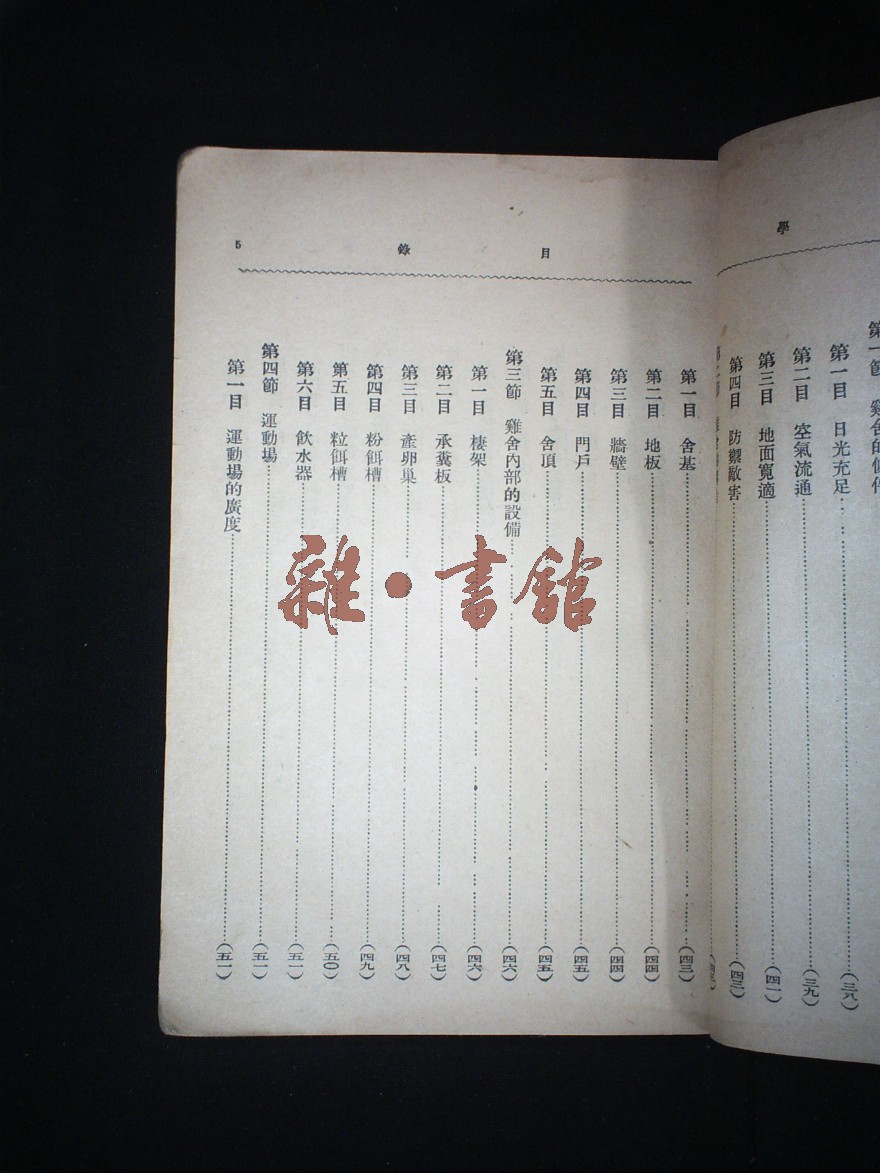 學
第一節 雞舍的條件
第一目 日光充足………(三八)
第二目 空氣流通………(三九)
第三目 地面寬適………(四一)
第四目 防禦敵害………(四二)
目 錄 5
第一目 舍基………(四三)
第二目 地板………(四四)
第三目 牆壁………(四四)
第四目 門戶………(四五)
第五目 舍頂………(四五)
第三節 雞舍內部的設備………(四六)
第一目 棲架………(四六)
第二目 承糞板………(四七)
第三目 產卵巢………(四八)
第四目 粉餌槽………(四九)
第五目 粒餌槽………(五〇)
第六目 飲水器………(五一)
第四節 運動場………(五一)
第一目 運動場的廣度………(五一)
雜·書館